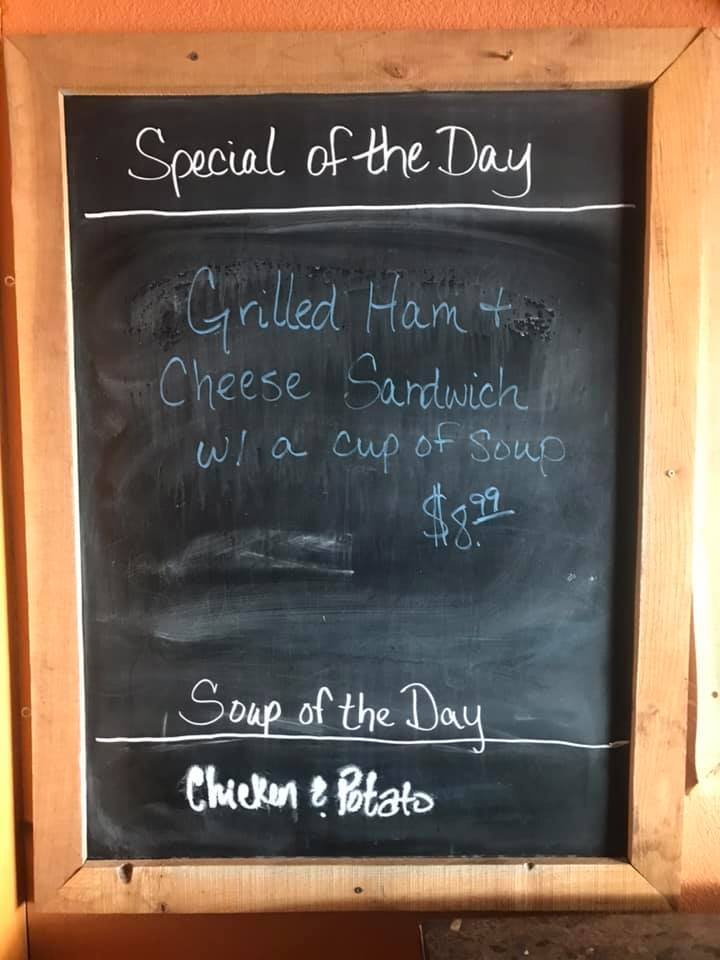 Special of the Day
Grilled Ham +
Cheese Sandwich
w/ a cup of soup
$8.99
Soup of the Day
Chicken & Potato